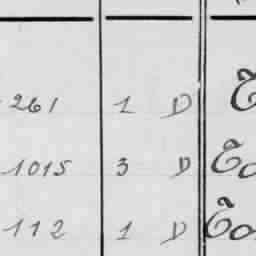 261 1 D
1015 3 D
112 1 D